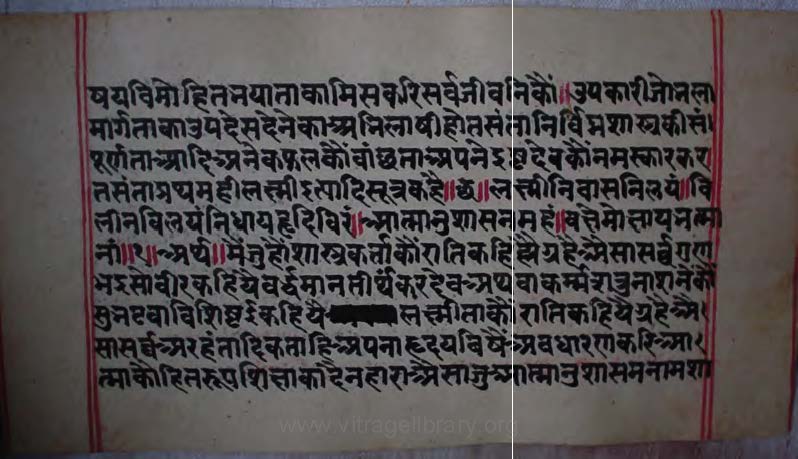 षयविमोहितनयाताकामिसकरिसर्वजीवनिकौं॥उपकारीजोनला
मार्गताकाउपदेसदेनेकाअनिलाषीहोतसंतानिर्विघ्नशास्त्रकीसं।
पूर्णताआदिअनेकफलकौंवांछताअपनेइष्टदेवकौंनमस्कारकर
तसंताप्रथमहीलक्ष्मीइत्यादिसूत्रकहै॥छ॥लक्ष्मीनिवासनिलयं॥वि
लीनविलयंनिधायहृदिविरं॥आत्मानुशासनमहं॥वक्षेमोक्षायनत्मा
नां॥१॥अर्थ॥मैंजुहौंशास्त्रकर्त्ताकौंरातिकहियेग्रहैअैसासर्वगुण
भइसोवीरकहियैवर्द्धमानतीर्थंकरदेवअथवाकर्म्मशत्रुनाशनेकौं
सुनटवाविशिष्टईकहियै लक्ष्मीताकौंरातिकहियैग्रहैअै।
सासर्व्वअरहंतादिकताहिअपनाहृदयविषैंअवधारणकरिआ।
त्माकौंहितरूपशिक्षाकादैनहाराअैसाजुआत्मानुशासमनामशा
www.vitragellbrary.org